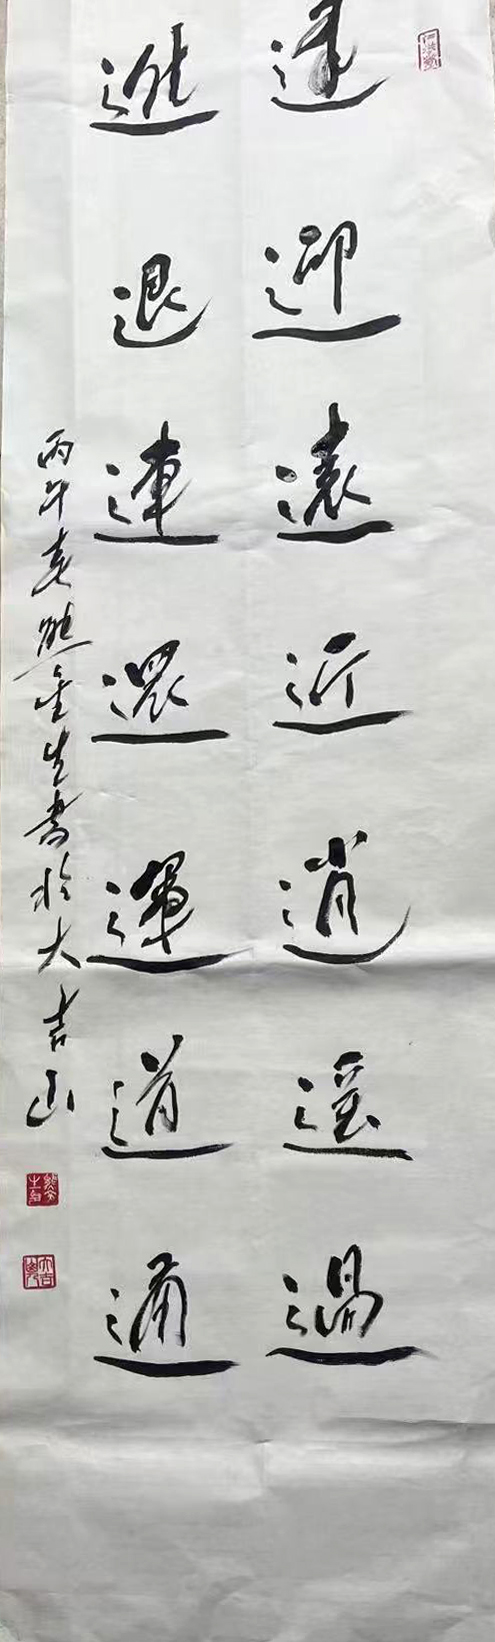 逢迎遠近逍遥過
進退連還運道通
丙午春熊金生書於大吉山